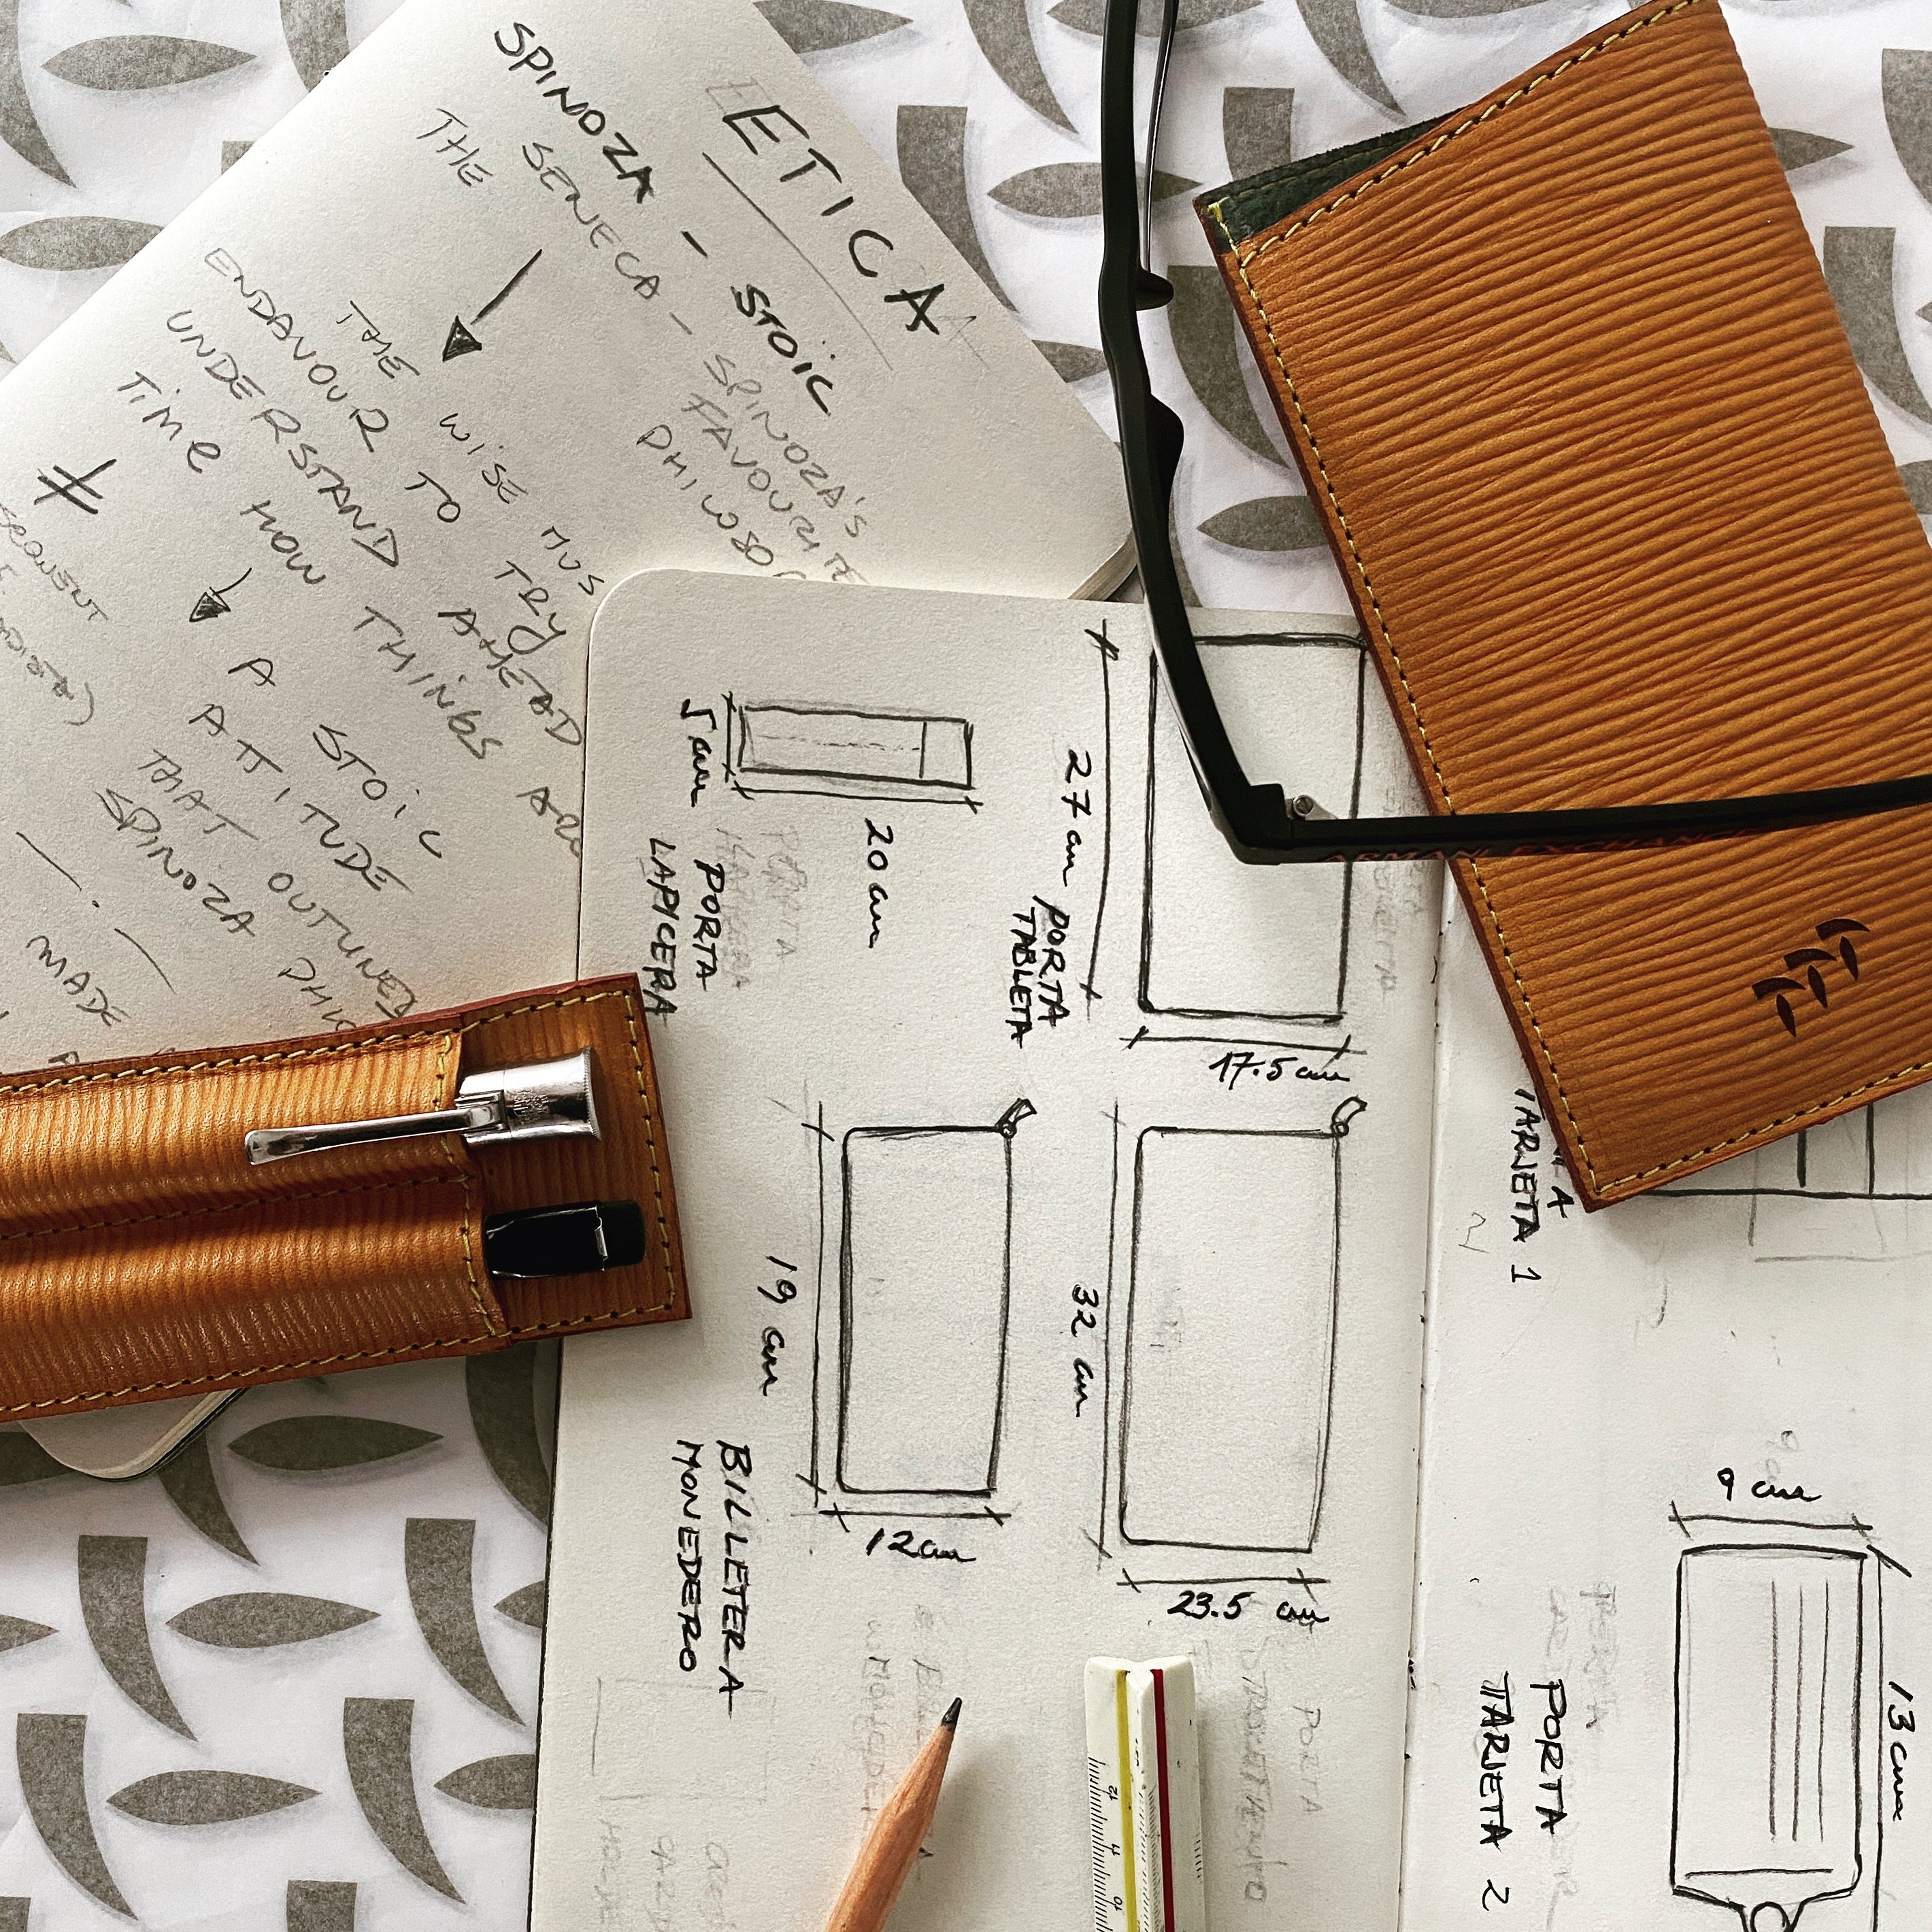 ETICA
SPINOZA - STOÏC
THE SENECA - SPINOZA'S
FAVOURITE
THE WISE MUS
ENDAVOUR TO TRY
UNDERSTAND AHEAD
TIME HOW THINGS ARE
≠
A STOIC
ATTITUDE
THAT OUTLINED
SPINOZA
MADE
5 cm
20 cm
PORTA
LAPICERA
27 cm
17.5 cm
PORTA
TABLETA
19 cm
12 cm
BILLETERA
MONEDERO
32 cm
23.5 cm
TARJETA 1
9 cm
13 cm
PORTA
TARJETA 2